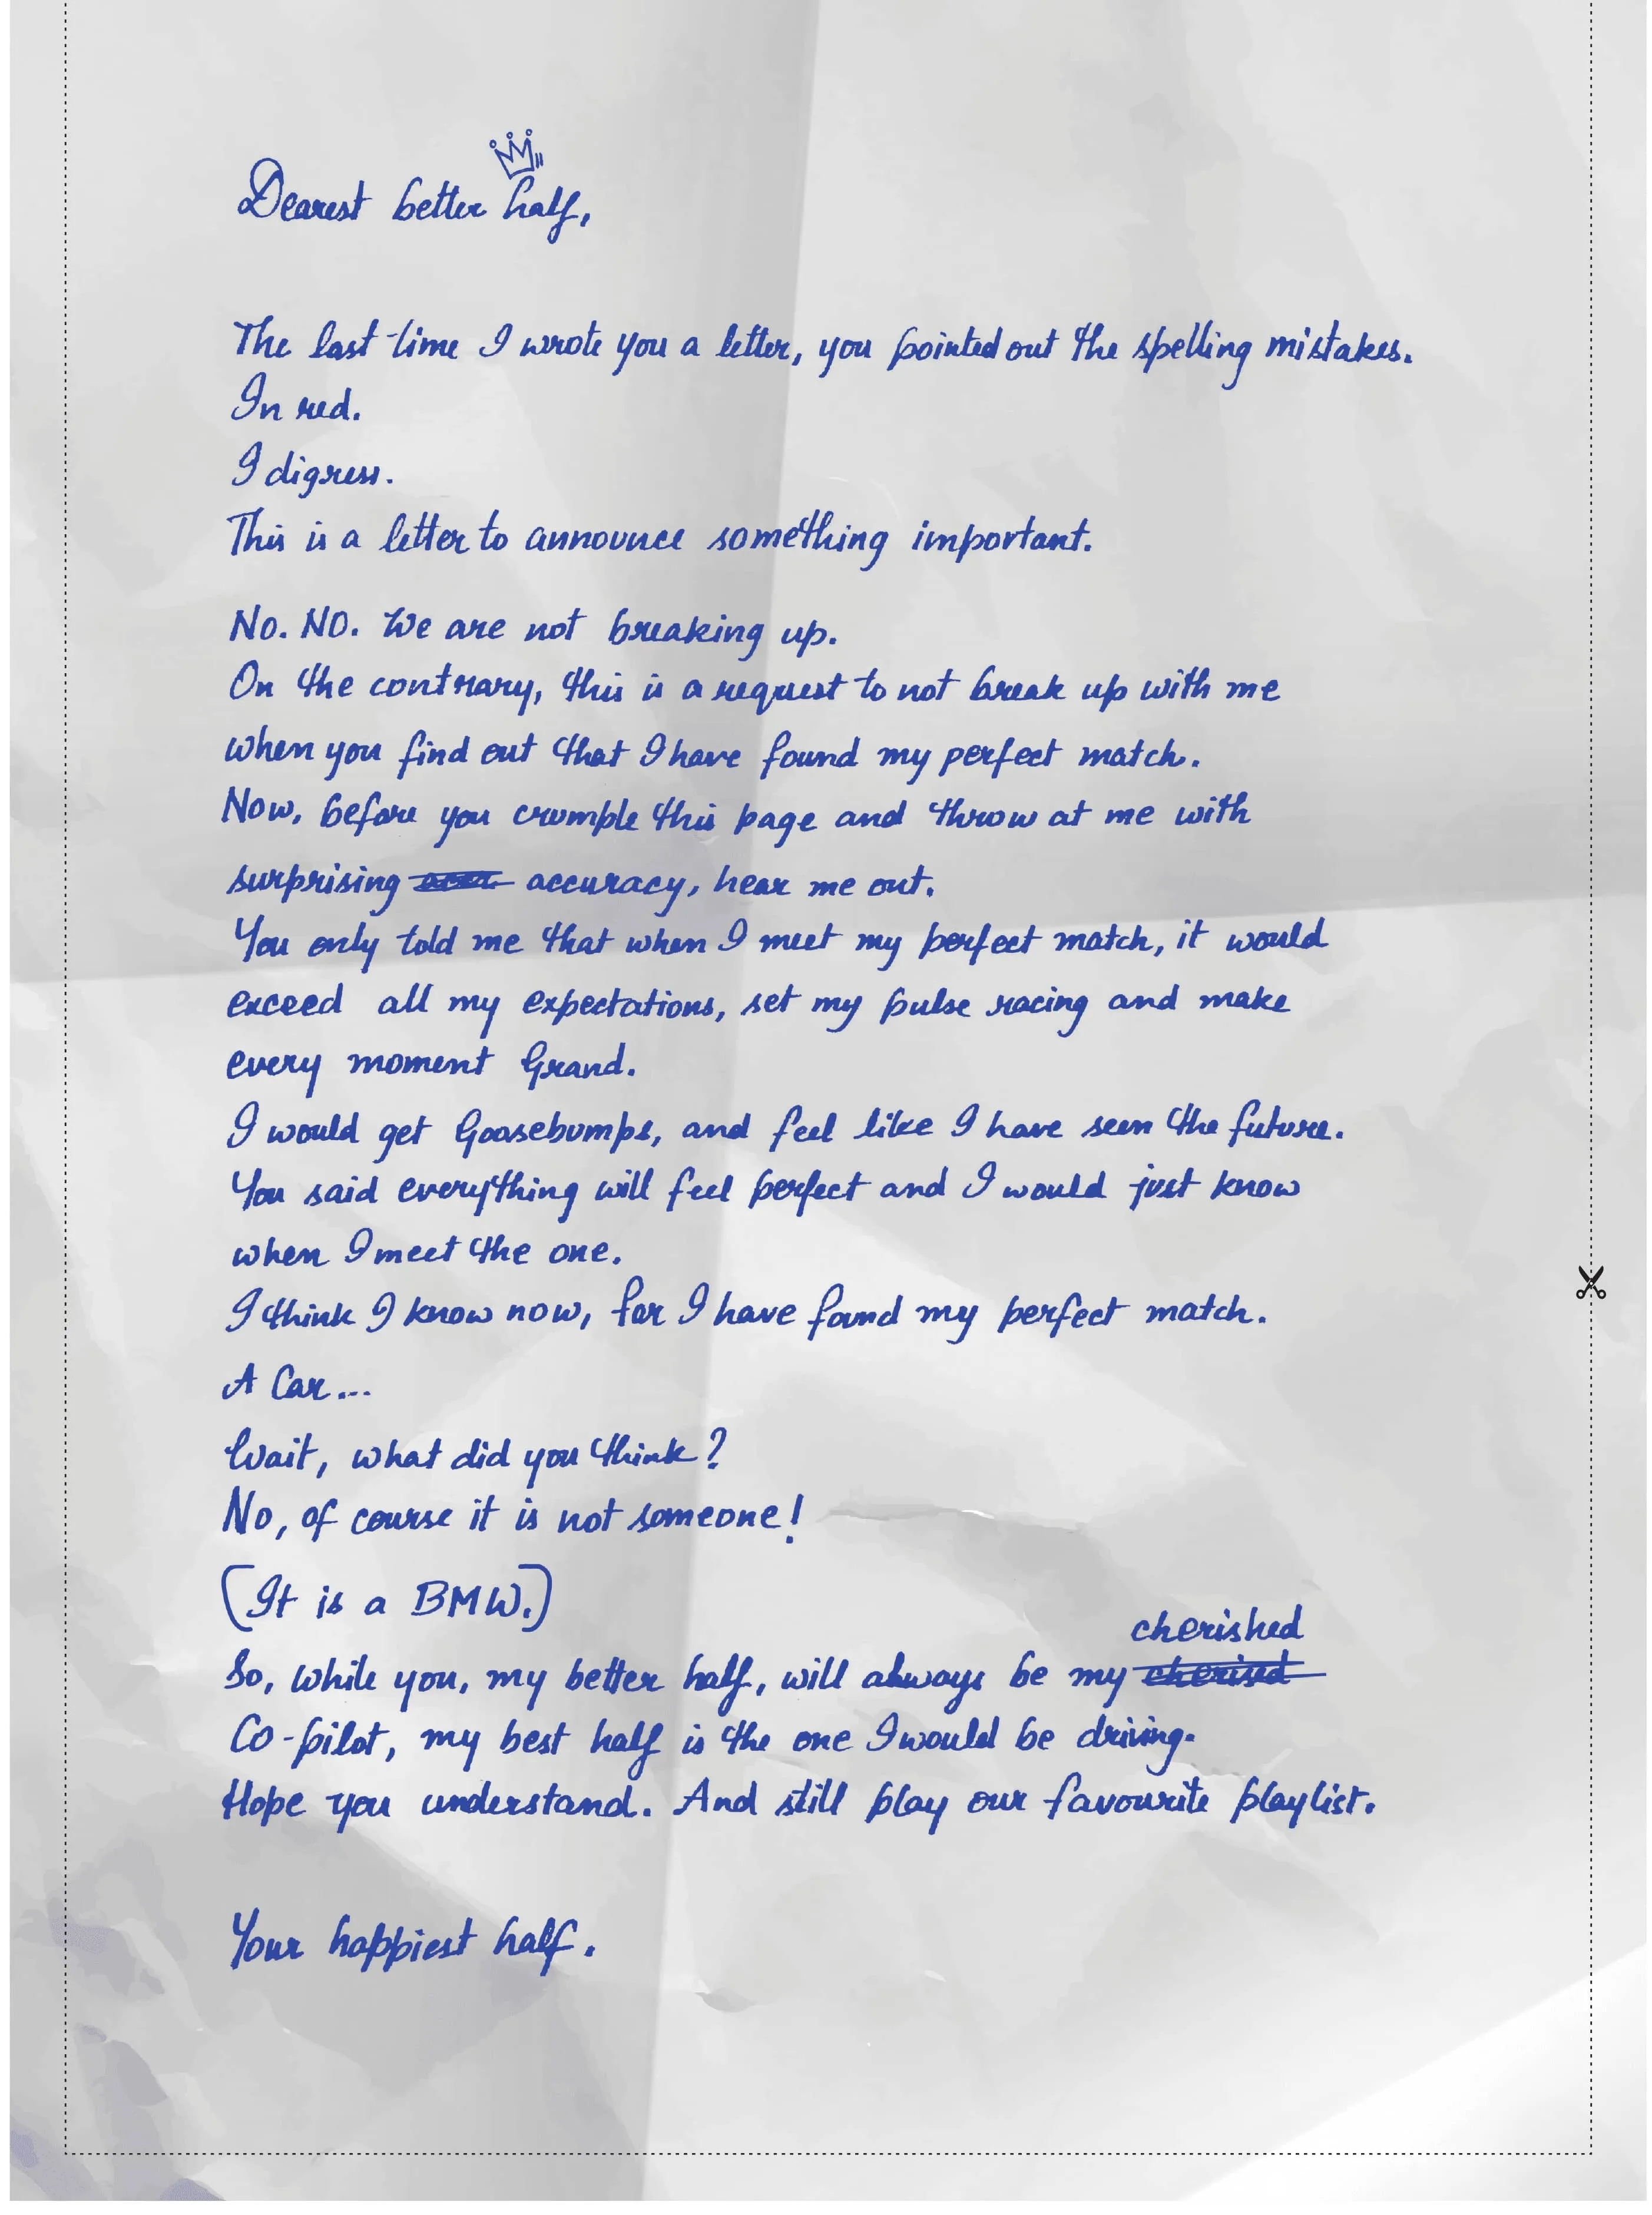 Dearest better half,
The last time I wrote you a letter, you pointed out the spelling mistakes.
In red.
I digress.
This is a letter to announce something important.
No. No. We are not breaking up.
On the contrary, this is a request to not break up with me
when you find out that I have found my perfect match.
Now, before you crumple this page and throw at me with
surprising accuracy, hear me out.
You only told me that when I meet my perfect match, it would
exceed all my expectations, set my pulse racing and make
every moment Grand.
I would get Goosebumps, and feel like I have seen the future.
You said everything will feel perfect and I would just know
when I meet the one.
I think I know now, for I have found my perfect match.
A Car...
Wait, what did you think?
No, of course it is not someone!
(It is a BMW.)
cherished
So, while you, my better half, will always be my cherised
Co-pilot, my best half is the one I would be driving.
Hope you understand. And still play our favourite playlist.
Your happiest half.